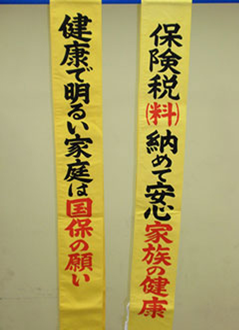 保険税(料)納めて安心家族の健康
健康で明るい家庭は国保の願い